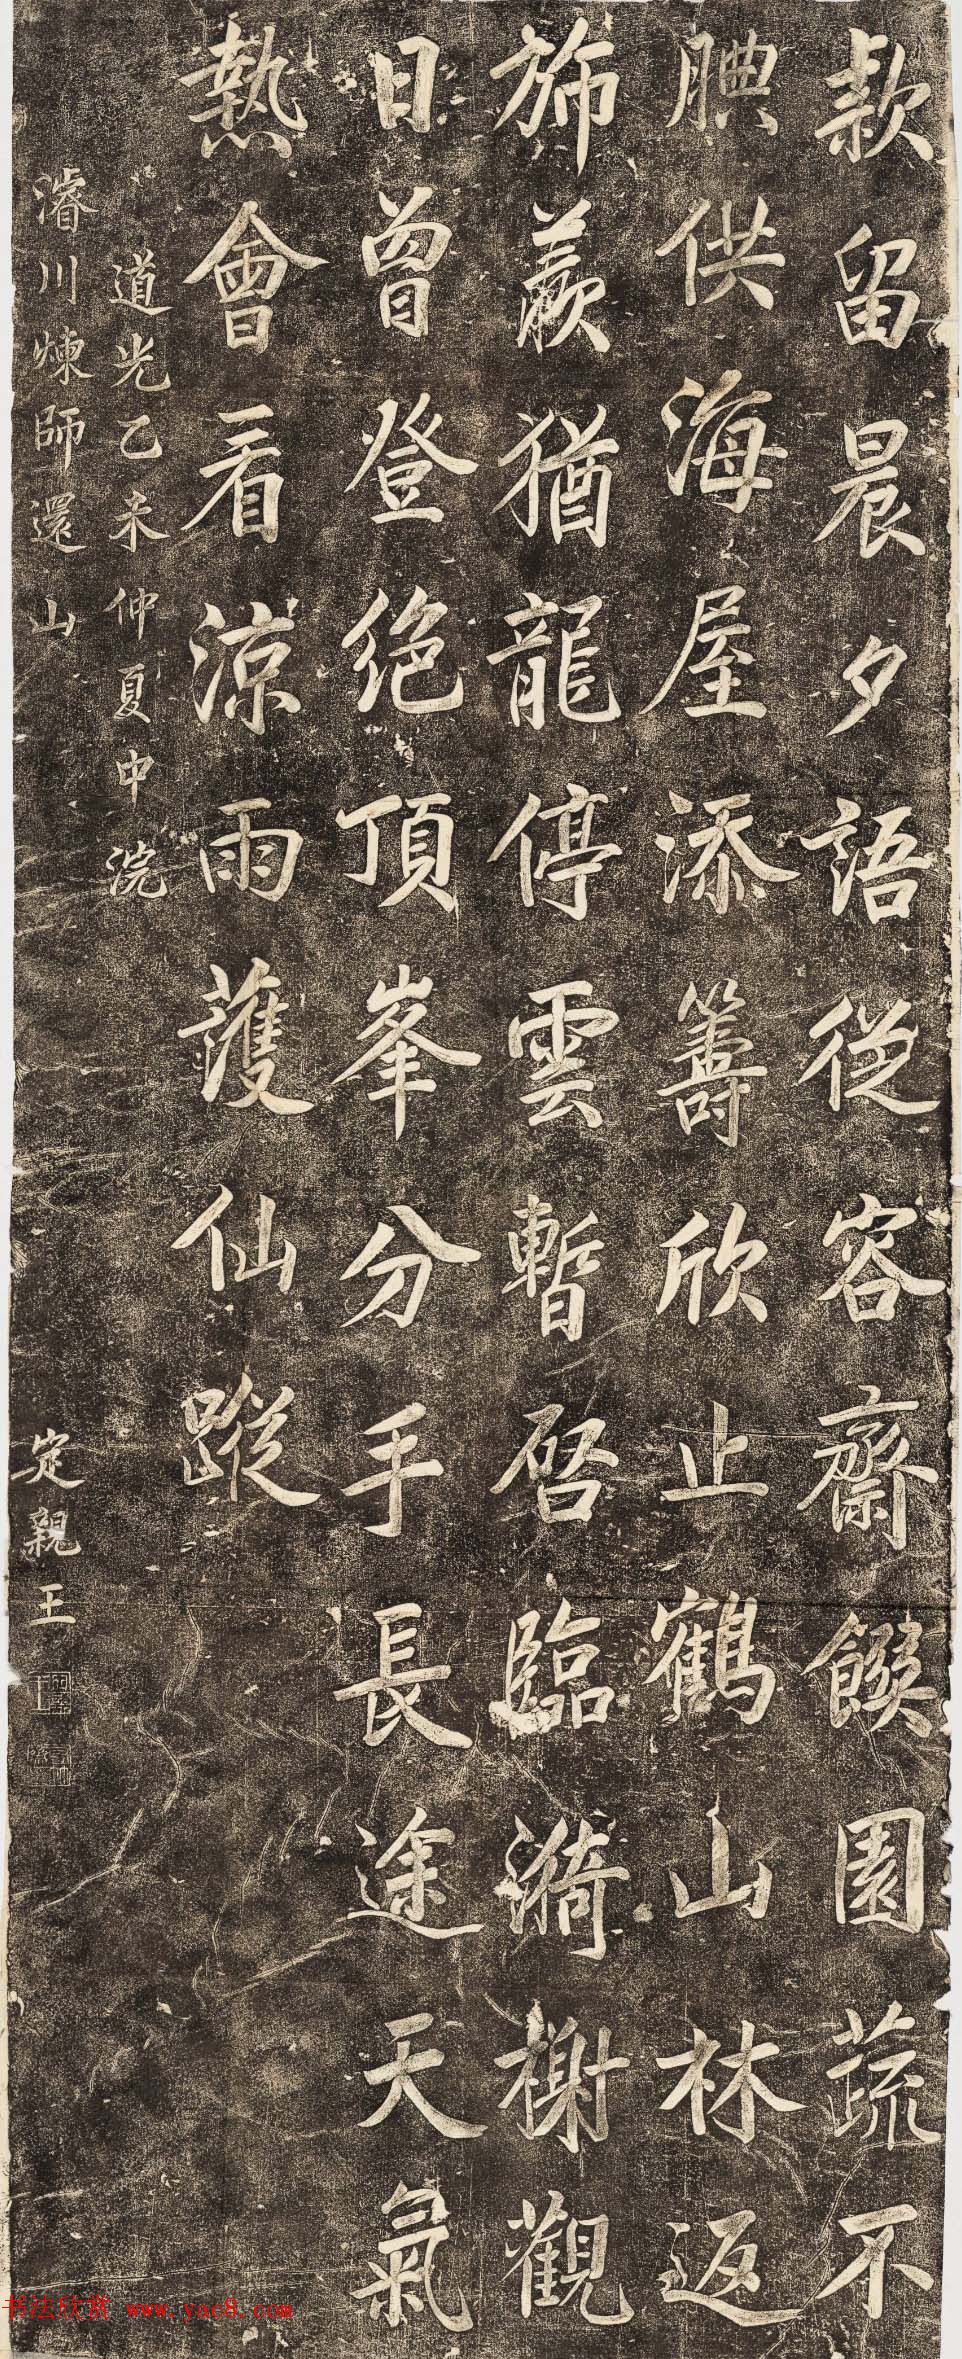 款留晨夕語從容齋餱園蔬不
腆供海屋添籌欣止鶴山林返
旆羨猶龍停雲暫啓臨漪榭觀
日曾登絕頂峯分手長途天氣
熱會看涼雨護仙蹤
道光乙未仲夏中浣
濬川煉師還山
定親王
书法欣赏 www.yac8.com